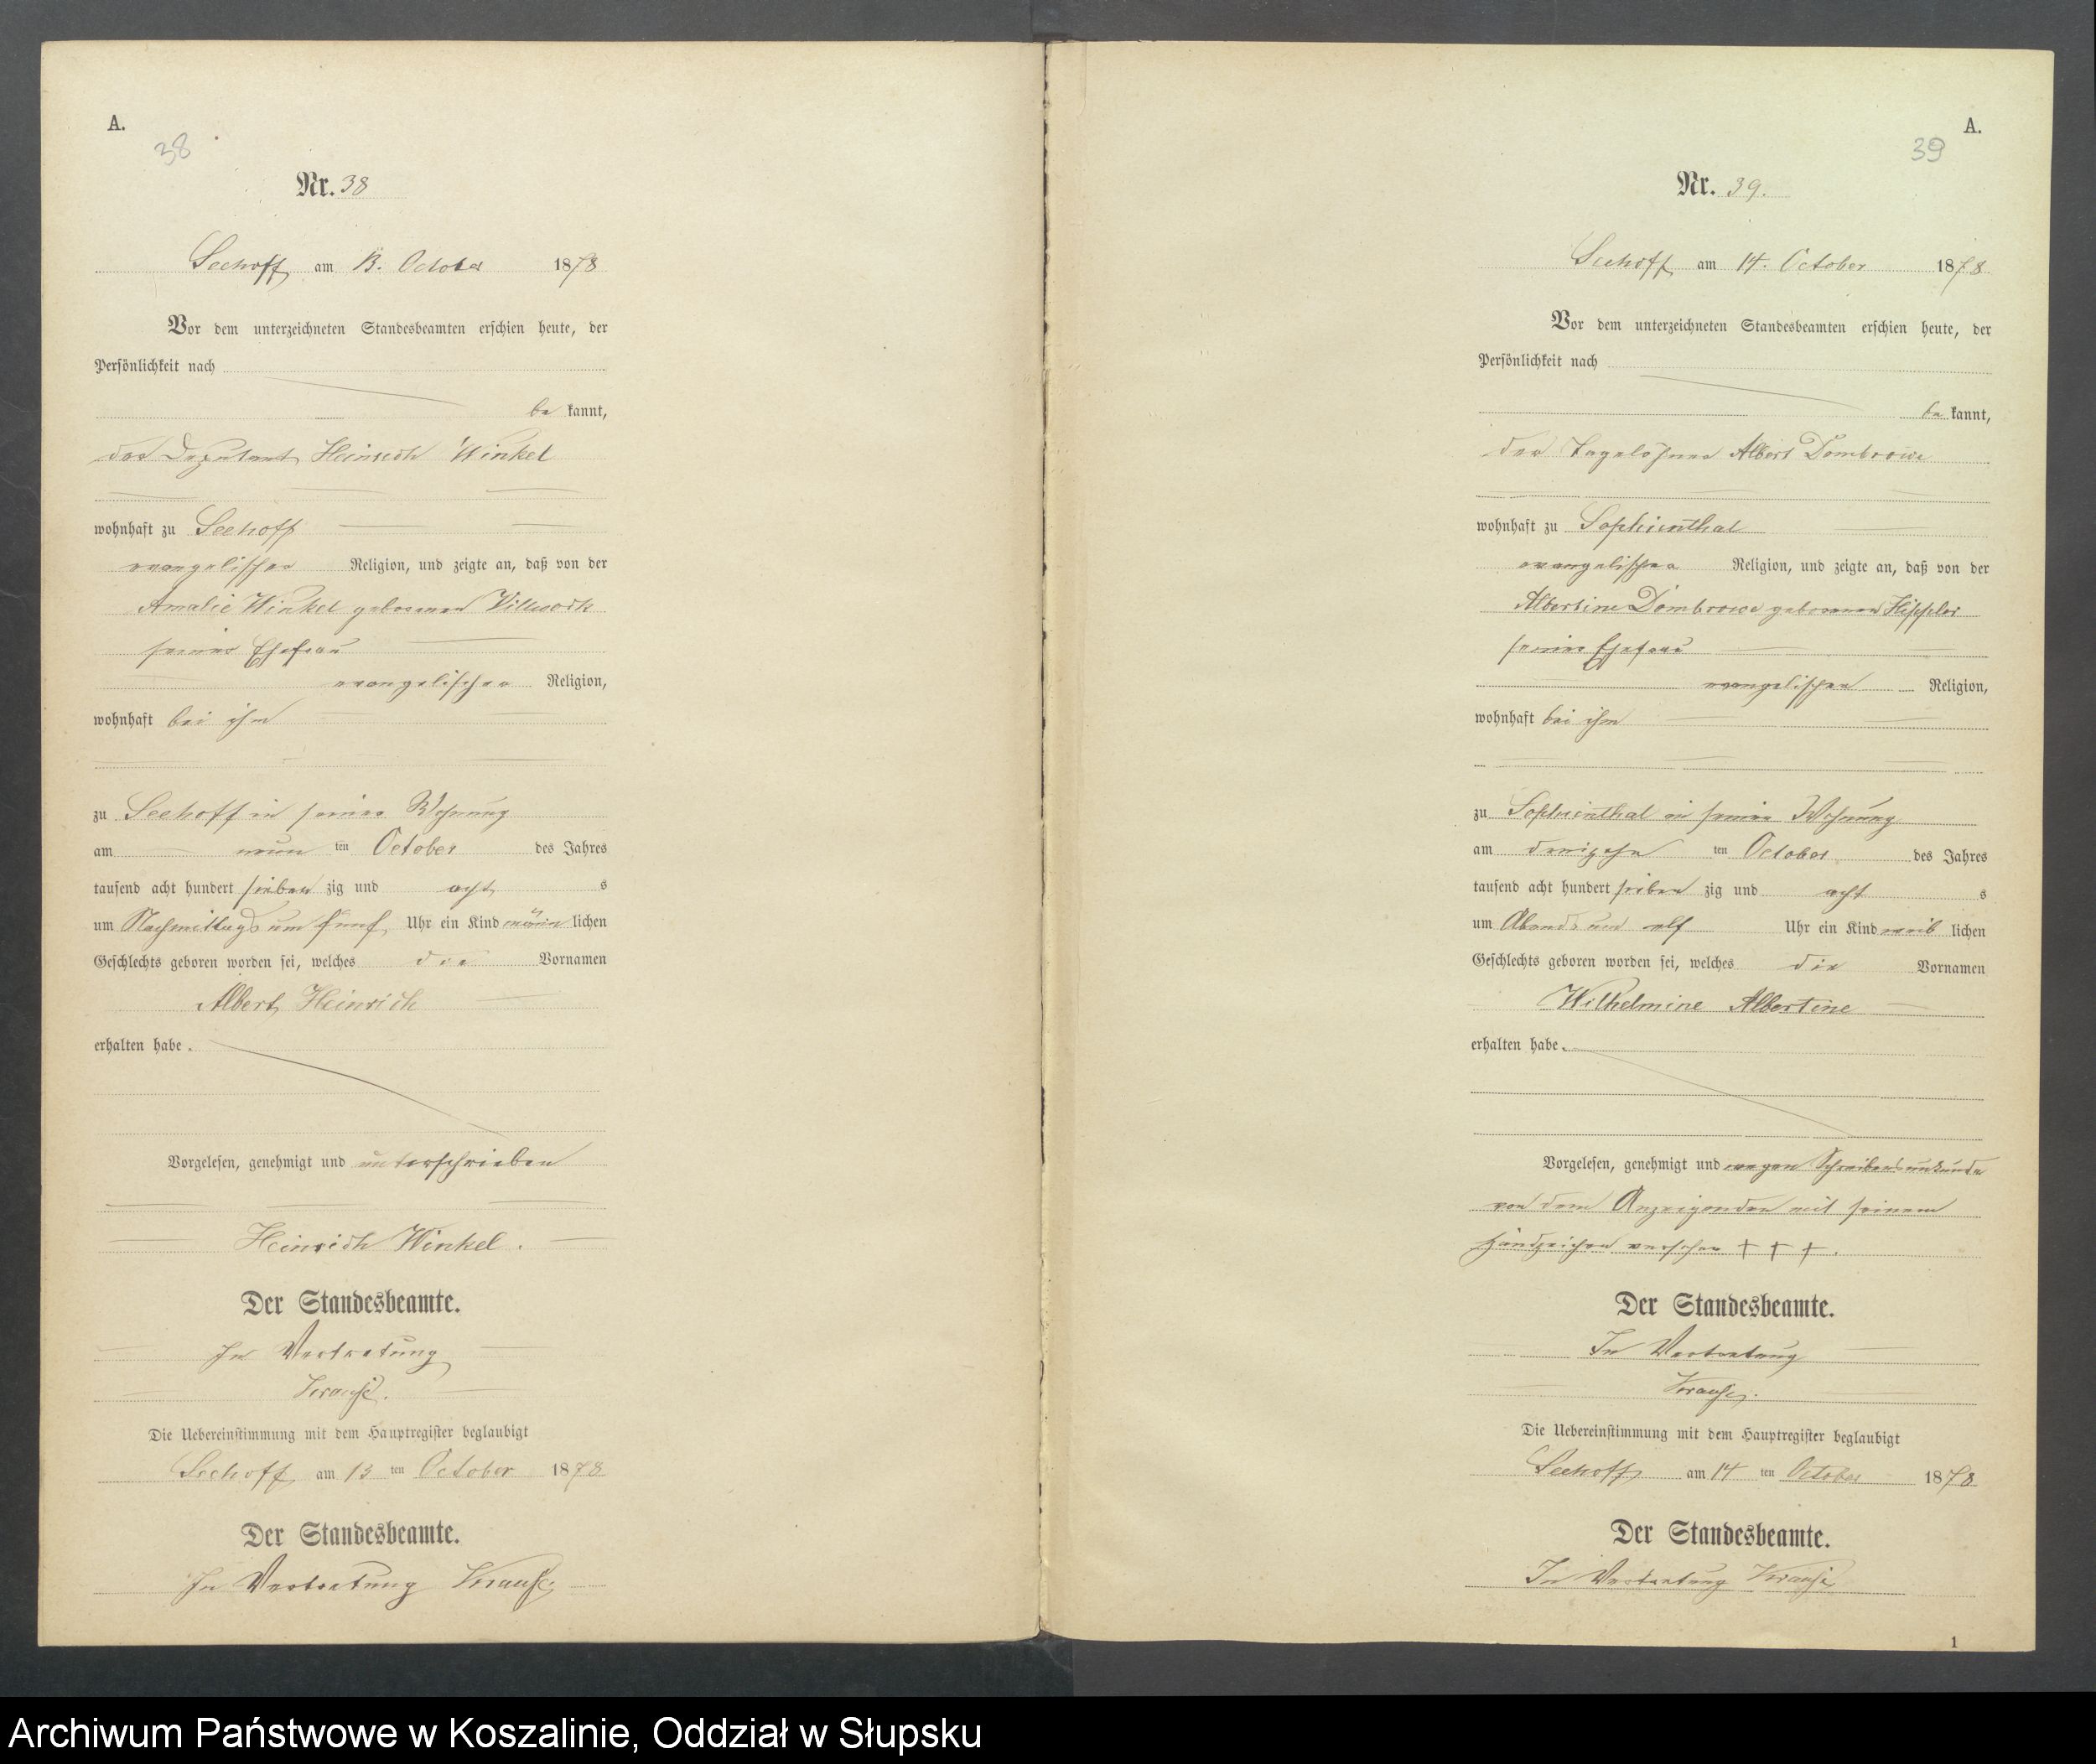 A.
38
Nr. 38
Seehoff am 13. October 1878
Vor dem unterzeichneten Standesbeamten erschien heute, der
Persönlichkeit nach
be kannt,
der Deputant Heinrich Winkel
wohnhaft zu Seehoff
evangelischer Religion, und zeigte an, daß von der
Amalie Winkel geborenen Villwock
seiner Ehefrau
evangelischer Religion,
wohnhaft bei ihm
zu Seehoff in seiner Wohnung
am neun ten October des Jahres
tausend acht hundert sieben zig und acht s
um Nachmittags um fünf Uhr ein Kind männ lichen
Geschlechts geboren worden sei, welches die Vornamen
Albert Heinrich
erhalten habe.
Vorgelesen, genehmigt und unterschrieben
Heinrich Winkel.
Der Standesbeamte.
In Vertretung
Krause.
Die Uebereinstimmung mit dem Hauptregister beglaubigt
Seehoff am 13 ten October 1878
Der Standesbeamte.
In Vertretung Krause
A.
39
Nr. 39.
Seehoff am 14. October 1878
Vor dem unterzeichneten Standesbeamten erschien heute, der
Persönlichkeit nach
be kannt,
der Tagelöhner Albert Dombrowe
wohnhaft zu Sophienthal
evangelischer Religion, und zeigte an, daß von der
Albertine Dombrowe geborenen
seiner Ehefrau
evangelischer Religion,
wohnhaft bei ihm
zu Sophienthal in seiner Wohnung
am dreizehn ten October des Jahres
tausend acht hundert sieben zig und acht s
um Abends um elf Uhr ein Kind weib lichen
Geschlechts geboren worden sei, welches die Vornamen
Wilhelmine Albertine
erhalten habe.
Vorgelesen, genehmigt und wegen Schreibensunkunde
von dem Anzeigenden mit seinem
Handzeichen versehen + + +.
Der Standesbeamte.
In Vertretung
Krause.
Die Uebereinstimmung mit dem Hauptregister beglaubigt
Seehoff am 14 ten October 1878
Der Standesbeamte.
In Vertretung Krause
1
Archiwum Państwowe w Koszalinie, Oddział w Słupsku